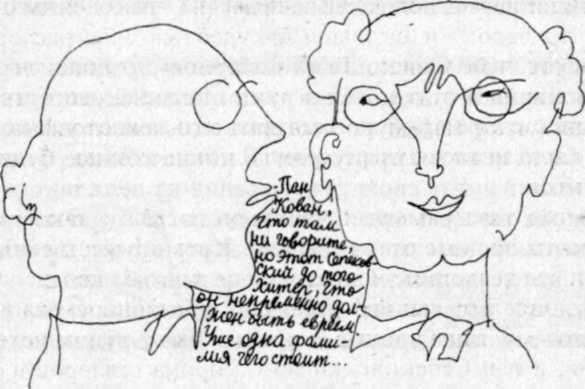 Пан
Кован,
что там
ни говорите,
но этот Сапков-
ский до того
хитер, что
он непременно дол-
жен быть евреем
Уже одна фами-
лия чего стоит.